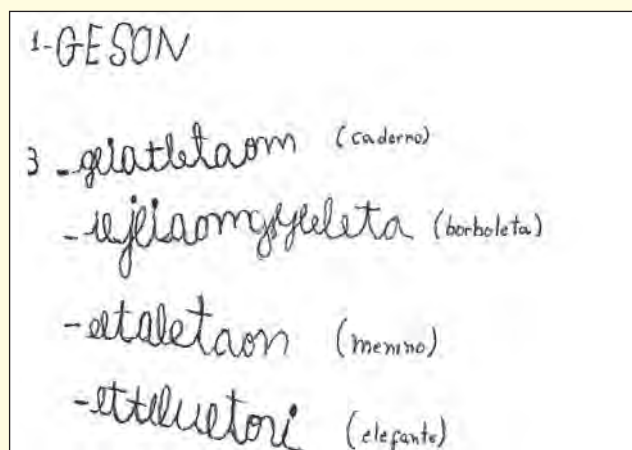 1-GESON
3-geiatletaom (caderno)
- (borboleta)
-eetaletaon (menino)
-etteluetori (elefante)